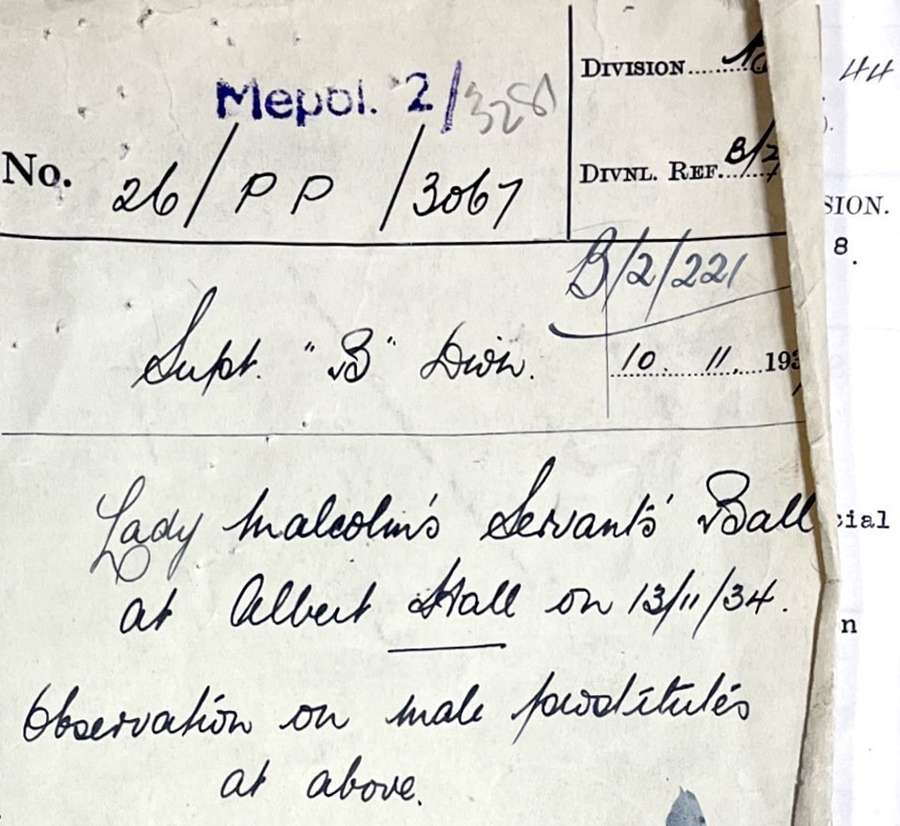 Mepol. 2/3281
DIVISION
44
No. 26/PP/3067
DIVNL. REF. B/2
SION.
8.
B/2/221
Supt. "B" Divn.
10. 11. 193
Lady Malcolm's Servants' Ball
cial
at Albert Hall on 13/11/34.
n
Observation on male prostitutes
at above.